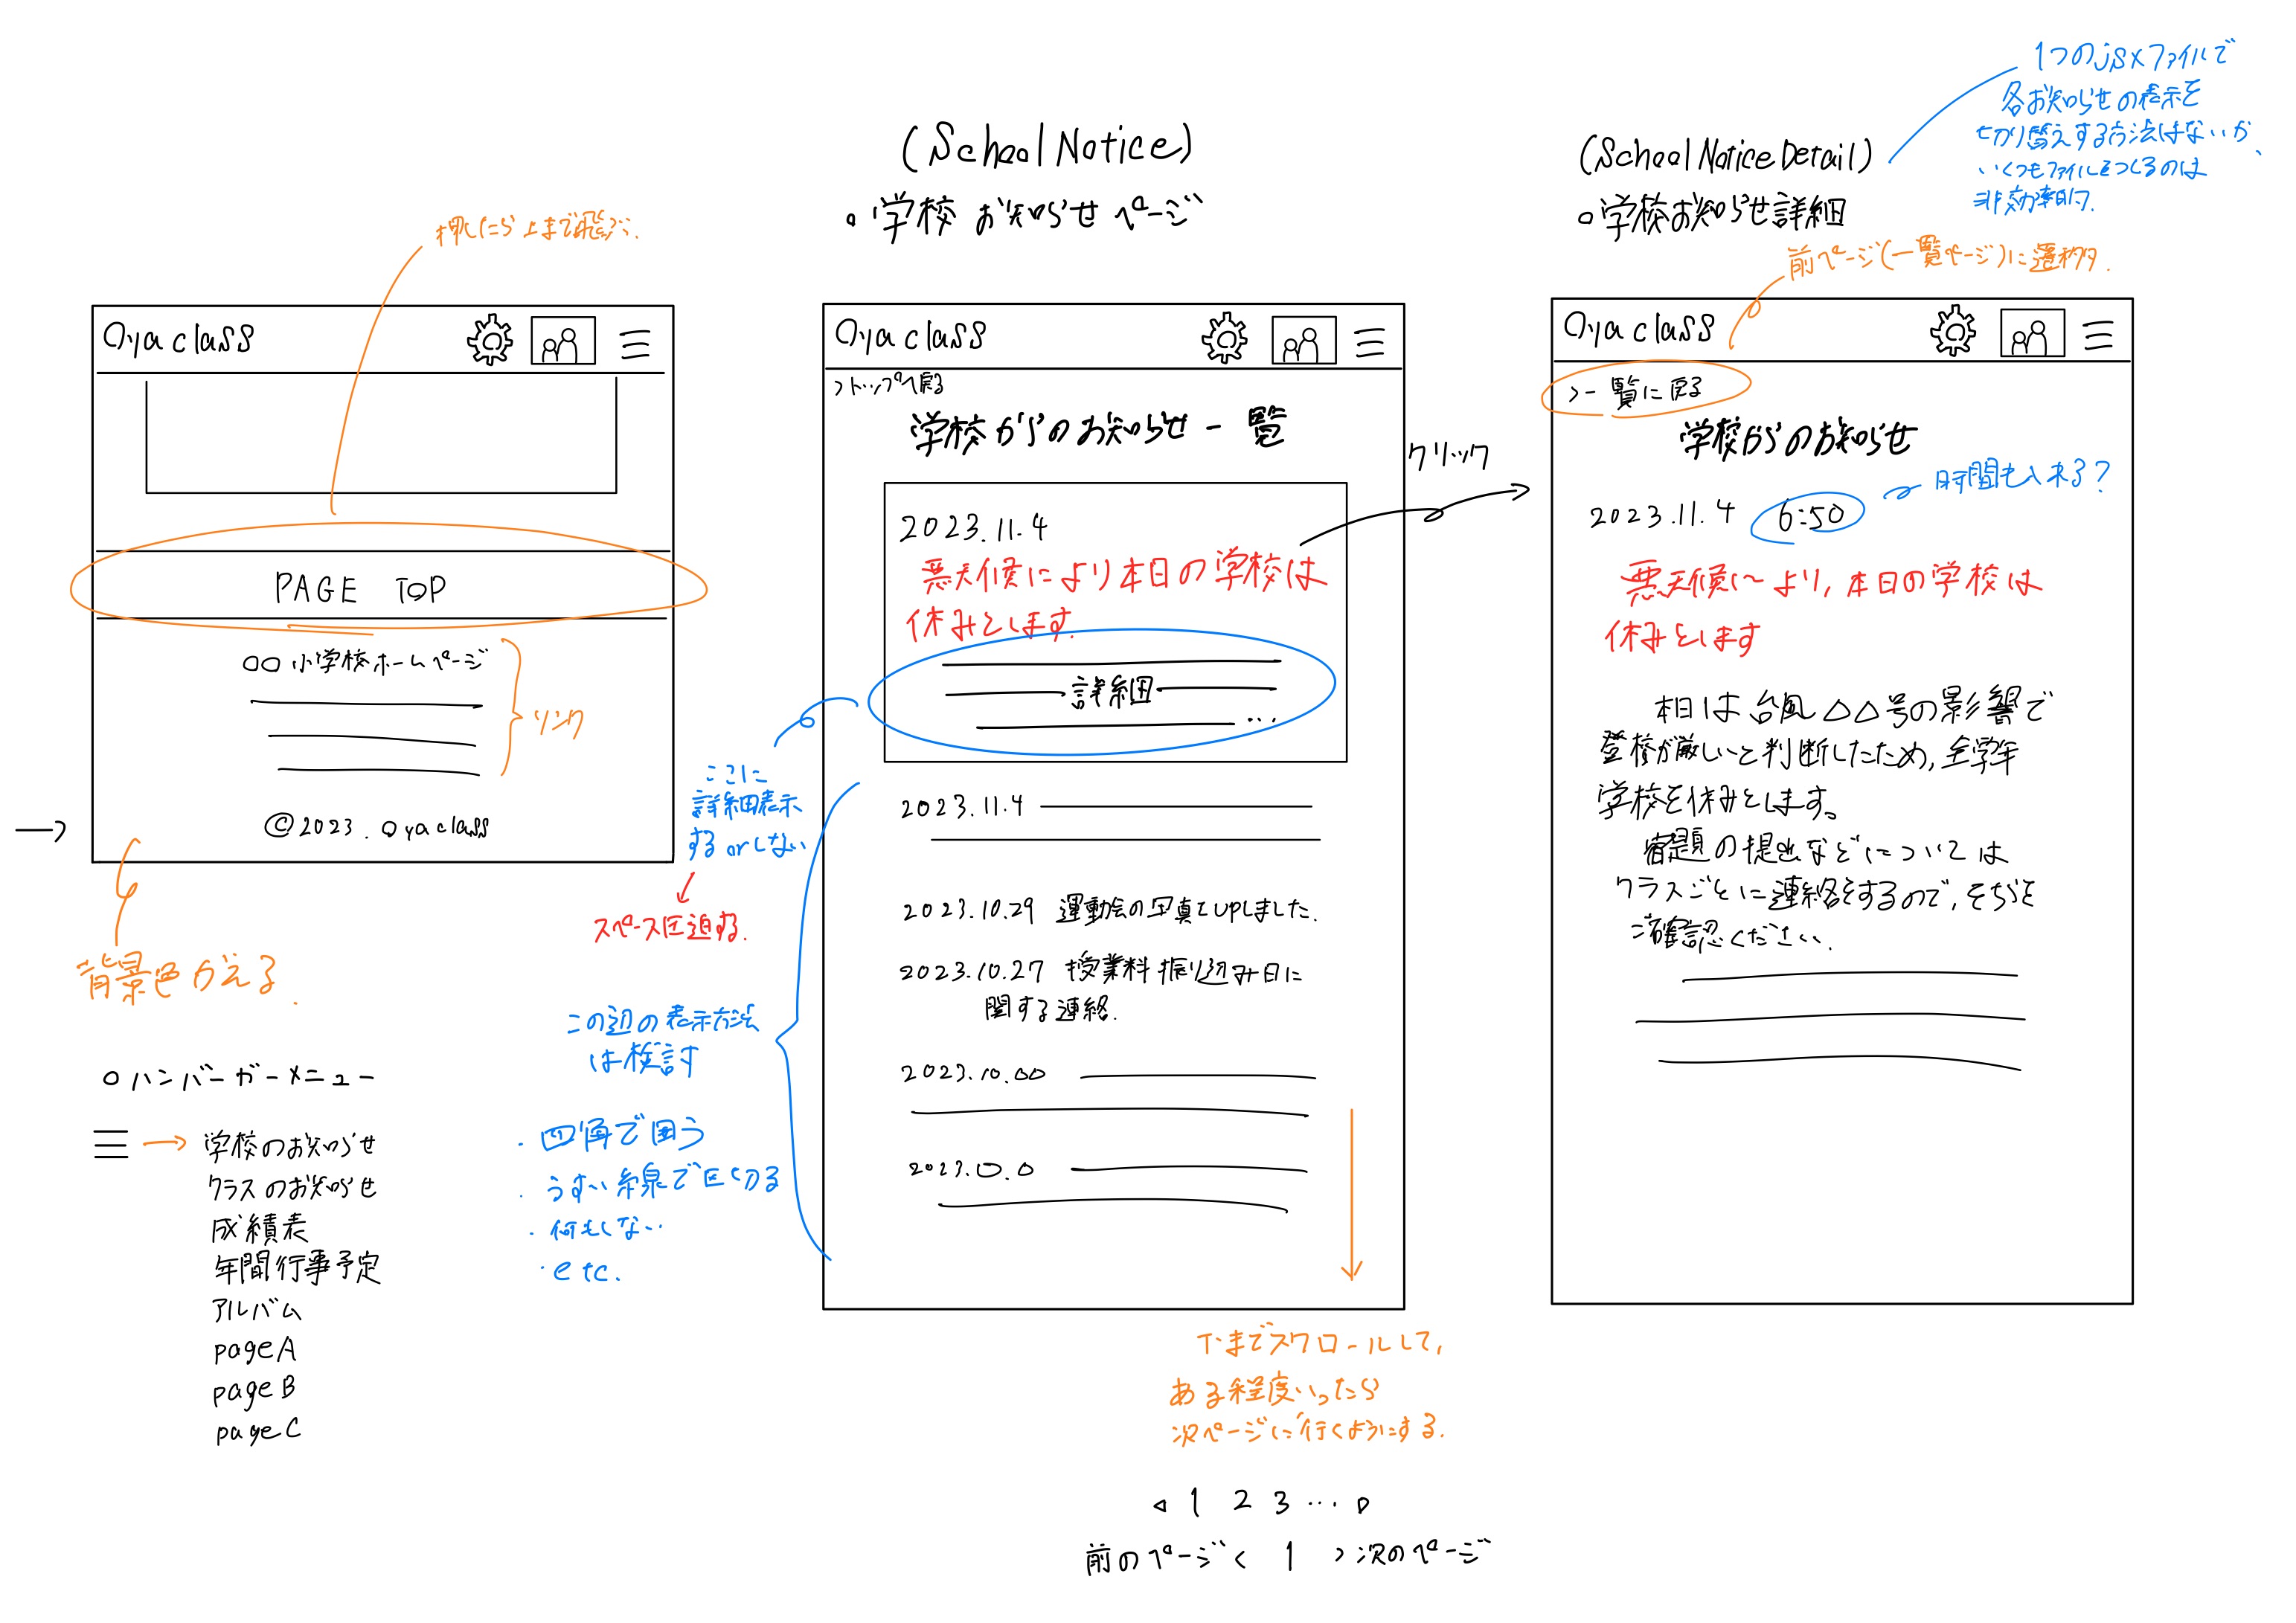 押したら上まで飛ぶ.
Oya class
PAGE TOP
○○小学校ホームページ
リンク
© 2023. Oya class
→
背景色かえる.
○ハンバーガーメニュー
三 → 学校のお知らせ
クラスのお知らせ
成績表
年間行事予定
アルバム
page A
page B
page C
(School Notice)
○学校お知らせページ
Oya class
>トップへ戻る
学校からのお知らせ一覧
2023.11.4
悪天候により本日の学校は
休みとします.
詳細
...
ここに
詳細表示
する or しない
スペース圧迫する.
この辺の表示方法
は検討
・四角で囲う
・うすい線で区切る
・何もしない
・etc.
2023.11.4
2023.10.29 運動会の写真をupしました.
2023.10.27 授業料振り込み日に
関する連絡.
2023.10.00
2023.0.0
下までスクロールして,
ある程度いったら
次ページに行くようにする.
◁ 1 2 3 … ▷
前のページ < 1 > 次のページ
クリック
(School Notice Detail)
○学校お知らせ詳細
1つのjsxファイルで
各お知らせの表示を
切り替えする方法はないか、
いくつもファイルをつくるのは
非効率的.
前ページ(一覧ページ)に遷移.
Oya class
>一覧に戻る
学校からのお知らせ
2023.11.4 6:50
時間も入れる?
悪天候により,本日の学校は
休みとします
本日は台風△△号の影響で
登校が厳しいと判断したため,全学年
学校を休みとします。
宿題の提出などについては
クラスごとに連絡をするので,そちらを
ご確認ください.